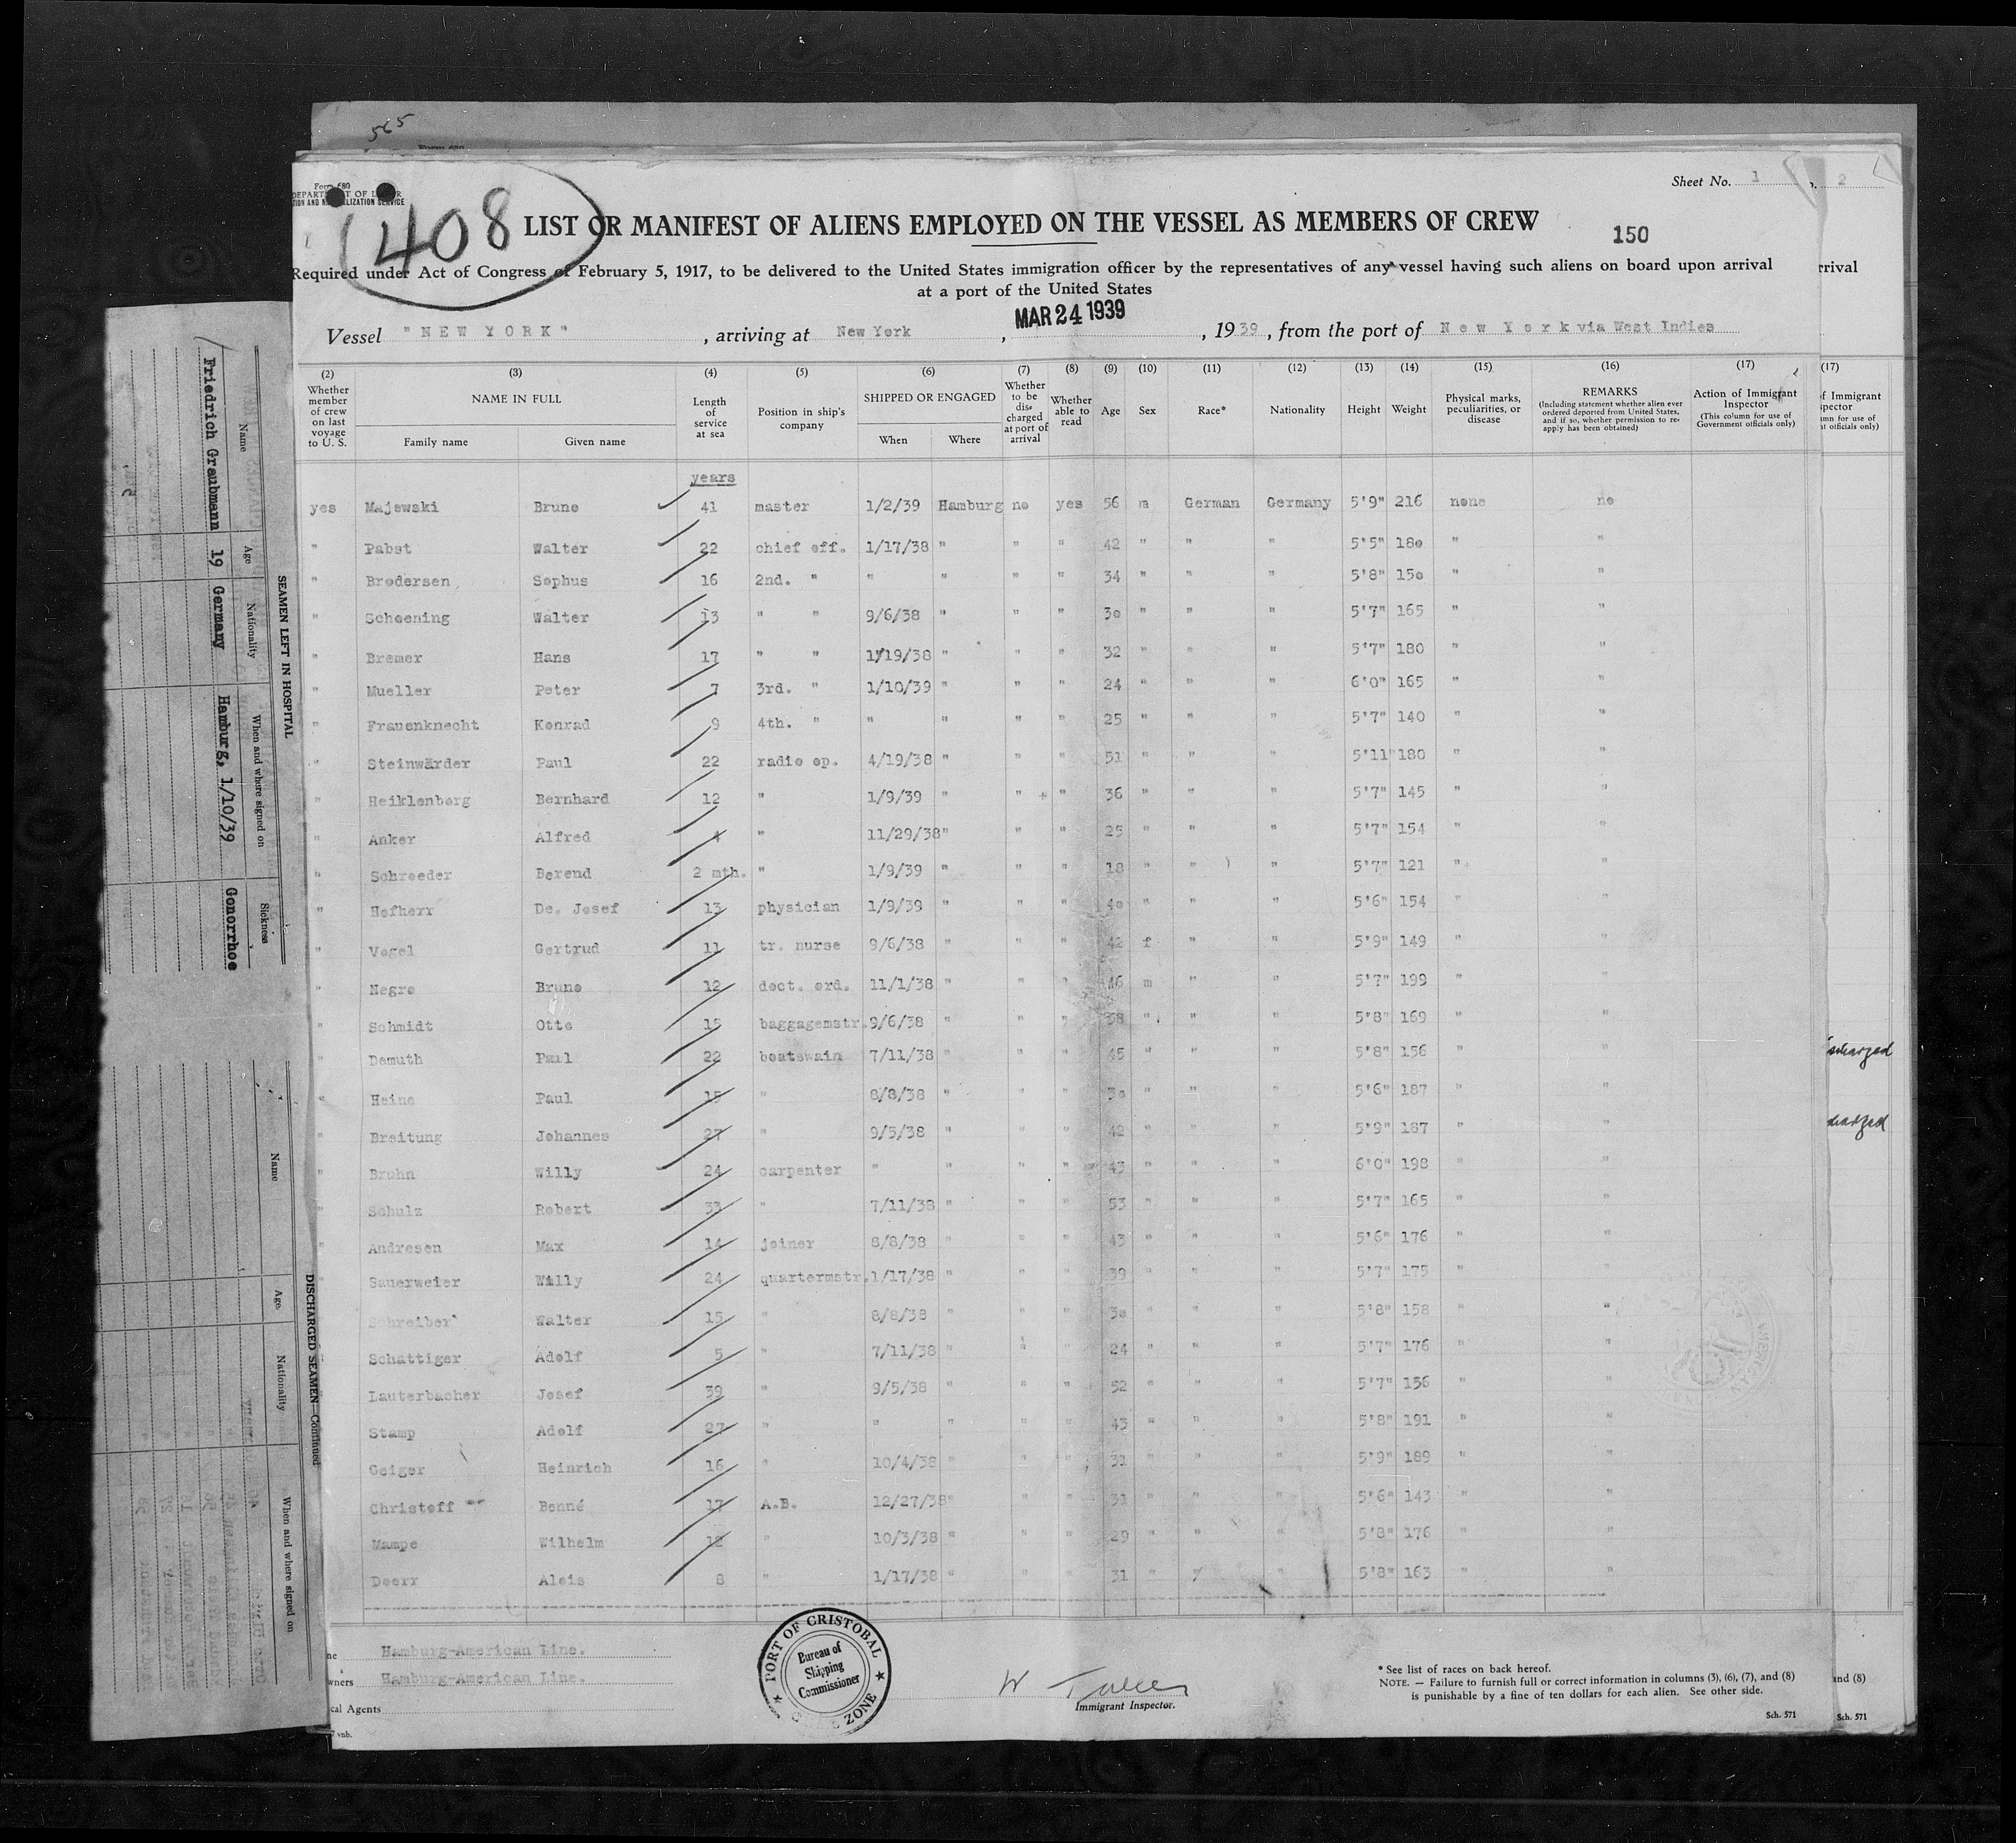 565
Form 680
408
Sheet No. 1
2
LIST OR MANIFEST OF ALIENS EMPLOYED ON THE VESSEL AS MEMBERS OF CREW
150
Required under Act of Congress of February 5, 1917, to be delivered to the United States immigration officer by the representatives of any vessel having such aliens on board upon arrival
rrival
at a port of the United States
MAR 24 1939
Vessel "NEW YORK", arriving at New York, 1939, from the port of New York via West Indies
(2) (3) (4) (5) (6) (7) (8) (9) (10) (11) (12) (13) (14) (15) (16) (17) (17)
Whether member of crew on last voyage to U. S.
NAME IN FULL
Family name Given name
Length of service at sea
Position in ship's company
SHIPPED OR ENGAGED
When Where
Whether to be discharged at port of arrival
Whether able to read
Age Sex Race* Nationality Height Weight
Physical marks, peculiarities, or disease
REMARKS
(Including statement whether alien ever ordered deported from United States, and if so, whether permission to reapply has been obtained)
Action of Immigrant Inspector
(This column for use of Government officials only)
years
yes Majewski Bruno 41 master 1/2/39 Hamburg no yes 56 m German Germany 5'9" 216 none no
" Pabst Walter 22 chief off. 1/17/38 " " " 42 " " " 5'5" 180 " "
" Brodersen Sophus 16 2nd. " " " " " 34 " " " 5'8" 150 " "
" Schoening Walter 13 " " 9/6/38 " " " 30 " " " 5'7" 165 " "
" Bremer Hans 17 " " 1/19/38 " " " 32 " " " 5'7" 180 " "
" Mueller Peter 7 3rd. " 1/10/39 " " " 24 " " " 6'0" 165 " "
" Frauenknecht Konrad 9 4th. " " " " " 25 " " " 5'7" 140 " "
" Steinwärder Paul 22 radio op. 4/19/38 " " " 51 " " " 5'11" 180 " "
" Heiklenborg Bernhard 12 " 1/9/39 " " " 36 " " " 5'7" 145 " "
" Anker Alfred 4 " 11/29/38 " " " 25 " " " 5'7" 154 " "
" Schroeder Berend 2 mth. " 1/9/39 " " " 18 " " " 5'7" 121 " "
" Hofherr De. Josef 13 physician 1/9/39 " " " 40 " " " 5'6" 154 " "
" Vogel Gertrud 11 tr. nurse 9/6/38 " " " 42 f " " 5'9" 149 " "
" Negro Bruno 12 doct. ord. 11/1/38 " " " 46 m " " 5'7" 199 " "
" Schmidt Otto 15 baggagemstr. 9/6/38 " " " 38 " " " 5'8" 169 " "
" Demuth Paul 22 boatswain 7/11/38 " " " 45 " " " 5'8" 156 " "
" Heine Paul 15 " 8/8/38 " " " 30 " " " 5'6" 187 " "
" Breitung Johannes 27 " 9/5/38 " " " 42 " " " 5'9" 187 " "
" Bruhn Willy 24 carpenter " " " " 43 " " " 6'0" 198 " "
" Schulz Robert 33 " 7/11/38 " " " 53 " " " 5'7" 165 " "
" Andresen Max 14 joiner 8/8/38 " " " 43 " " " 5'6" 176 " "
" Sauerweier Willy 24 quartermstr. 1/17/38 " " " 39 " " " 5'7" 175 " "
Schreiber Walter 15 " 8/8/38 " " " 30 " " " 5'8" 158 " "
Schattiger Adolf 5 " 7/11/38 " " " 24 " " " 5'7" 176 " "
Lauterbacher Josef 39 " 9/5/38 " " " 52 " " " 5'7" 156 " "
Stamp Adolf 27 " " " " " 43 " " " 5'8" 191 " "
Geiger Heinrich 16 " 10/4/38 " " " 31 " " " 5'9" 189 " "
Christoff Benné 17 A.B. 12/27/38 " " " 31 " " " 5'6" 143 " "
Mampe Wilhelm 12 " 10/3/38 " " " 29 " " " 5'8" 176 " "
Doerr Alois 8 " 1/17/38 " " " 31 " " " 5'8" 163 " "
Hamburg-American Line.
wners Hamburg-American Line.
cal Agents
PORT OF CRISTOBAL
Bureau of
Shipping
Commissioner
ZONE
Immigrant Inspector.
* See list of races on back hereof.
NOTE. — Failure to furnish full or correct information in columns (3), (6), (7), and (8)
is punishable by a fine of ten dollars for each alien. See other side.
and (8)
Sch. 571
Sch. 571
SEAMEN LEFT IN HOSPITAL
Name Age Nationality When and where signed on Sickness
Friedrich Graubmann 19 Germany Hamburg, 1/10/39 Gonorrhoe
DISCHARGED SEAMEN—Continued
Name Age Nationality When and where signed on